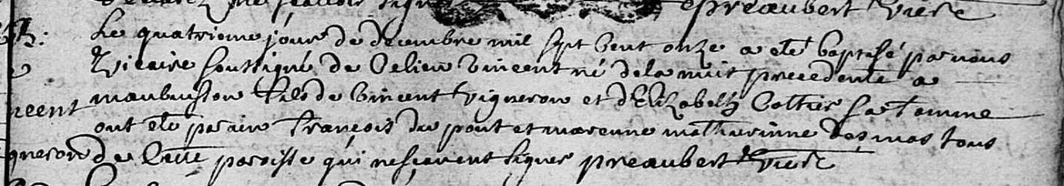 preaubert vicre
B. Le quatrieme jour de decembre mil sept cent onze a esté baptisé par nous
Vicaire soussigné de ce lieu vincent né de la nuit precedente a
ncent maubuisson fils de vincent vigneron et d'Elizabeth Cottier sa femme
ont esté parain François du pont et marenne mathurinne des mas tous
gneron de cette paroisse qui ne scavent signer preaubert vicre